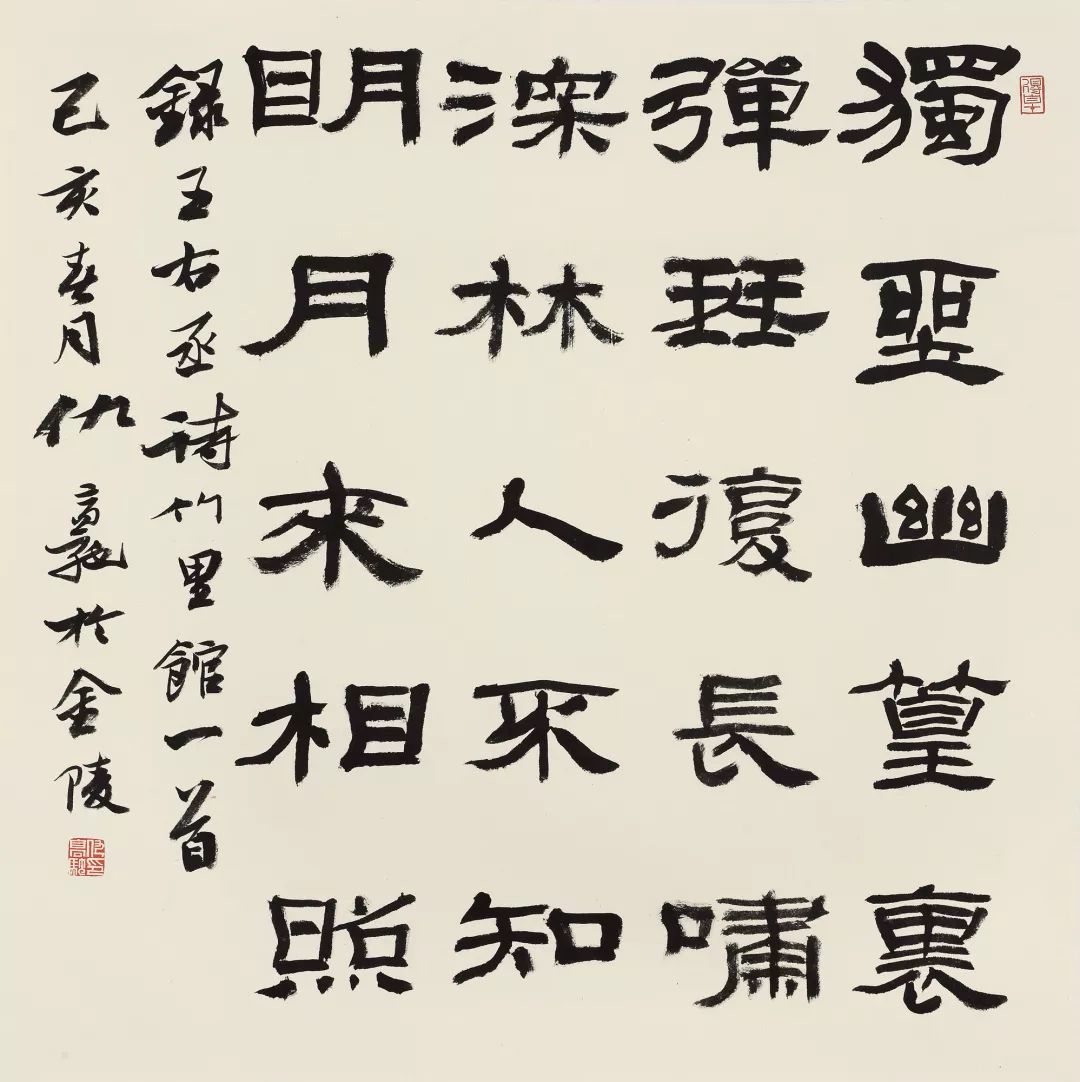 獨坐幽篁裏
彈琴復長嘯
深林人不知
明月來相照
錄王右丞詩竹里館一首
己亥春月仇高馳於金陵